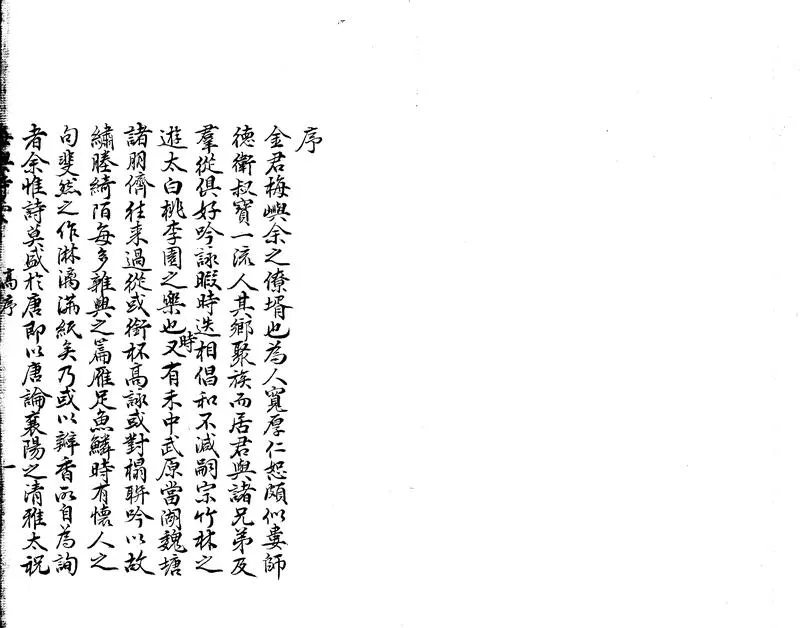 序
金君梅嶼余之僚壻也為人寬厚仁恕頗似婁師
德衛叔寶一流人其鄉聚族而居君與諸兄弟及
羣從俱好吟詠暇時迭相倡和不減嗣宗竹林之
遊太白桃李園之樂也時又有禾中武原當湖魏塘
諸朋儕往来過從或銜杯高詠或對榻聨吟以故
繡塍綺陌每多雜興之篇雁足魚鱗時有懷人之
句斐然之作淋漓滿紙矣乃或以辦香所自為詢
者余惟詩莫盛於唐即以唐論襄陽之清雅太祝
高序
一